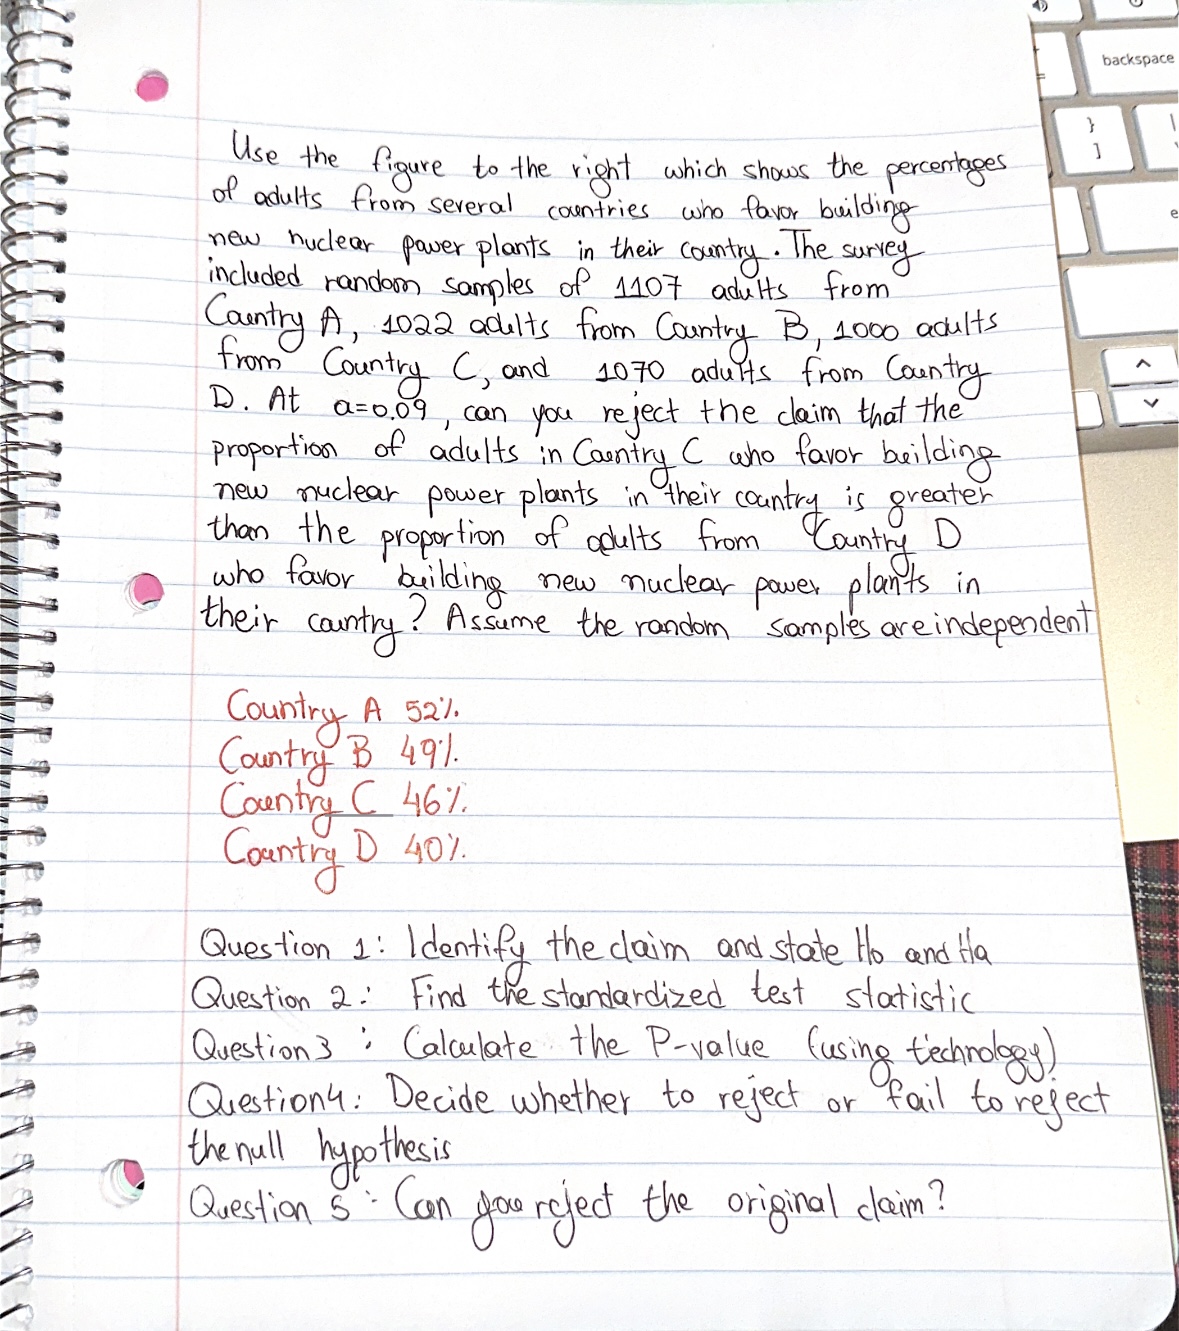 Use the figure to the right which shows the percentages
of adults from several countries who favor building
new nuclear power plants in their country. The survey
included random samples of 1107 adults from
Country A, 1022 adults from Country B, 1000 adults
from Country C, and 1070 adults from Country
D. At a=0.09, can you reject the claim that the
proportion of adults in Country C who favor building
new nuclear power plants in their country is greater
than the proportion of adults from Country D
who favor building new nuclear power plants in
their country? Assume the random samples are independent
Country A 52%
Country B 49%
Country C 46%
Country D 40%
Question 1: Identify the claim and state Ho and Ha
Question 2: Find the standardized test statistic
Question 3: Calculate the P-value (using technology)
Question 4: Decide whether to reject or fail to reject
the null hypothesis
Question 5: Can you reject the original claim?
backspace
}
]
=
e